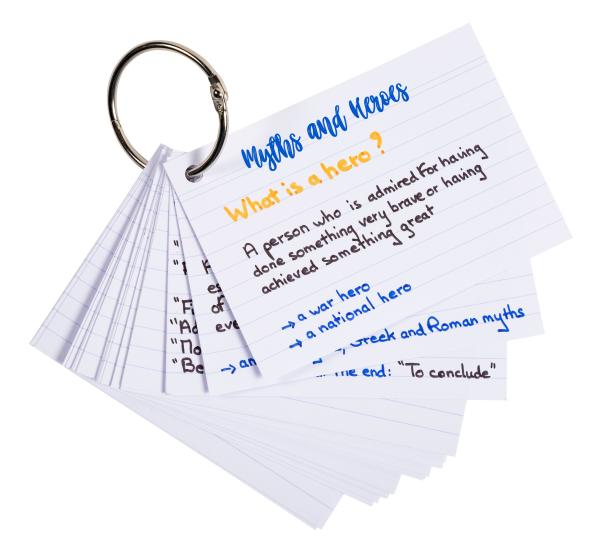 Myths and Heroes
What is a hero?
A person who is admired for having
done something very brave or having
achieved something great
→ a war hero
→ a national hero
Greek and Roman myths
the end: "To conclude"
→ an
of